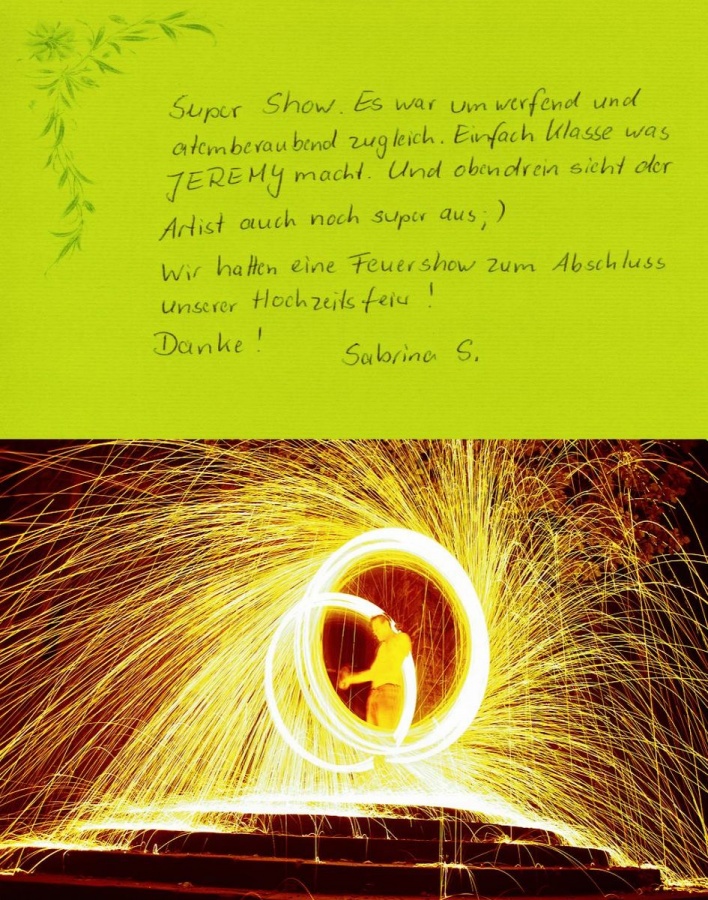 Super Show. Es war umwerfend und
atemberaubend zugleich. Einfach klasse was
JEREMY macht. Und obendrein sieht der
Artist auch noch super aus ; )
Wir hatten eine Feuershow zum Abschluss
unserer Hochzeitsfeier !
Danke !
Sabrina S.